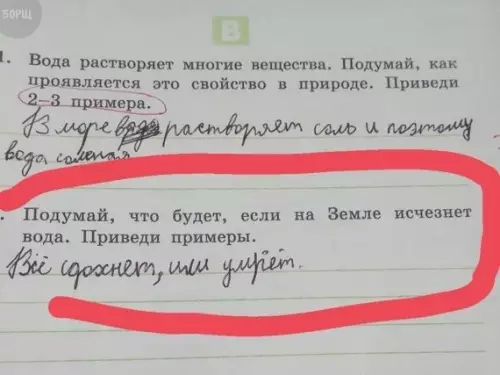 БОРЩ
В
1. Вода растворяет многие вещества. Подумай, как
проявляется это свойство в природе. Приведи
2–3 примера.
В море растворяет соль и поэтому
вода соленая
. Подумай, что будет, если на Земле исчезнет
вода. Приведи примеры.
Всё сдохнет, или умрёт.